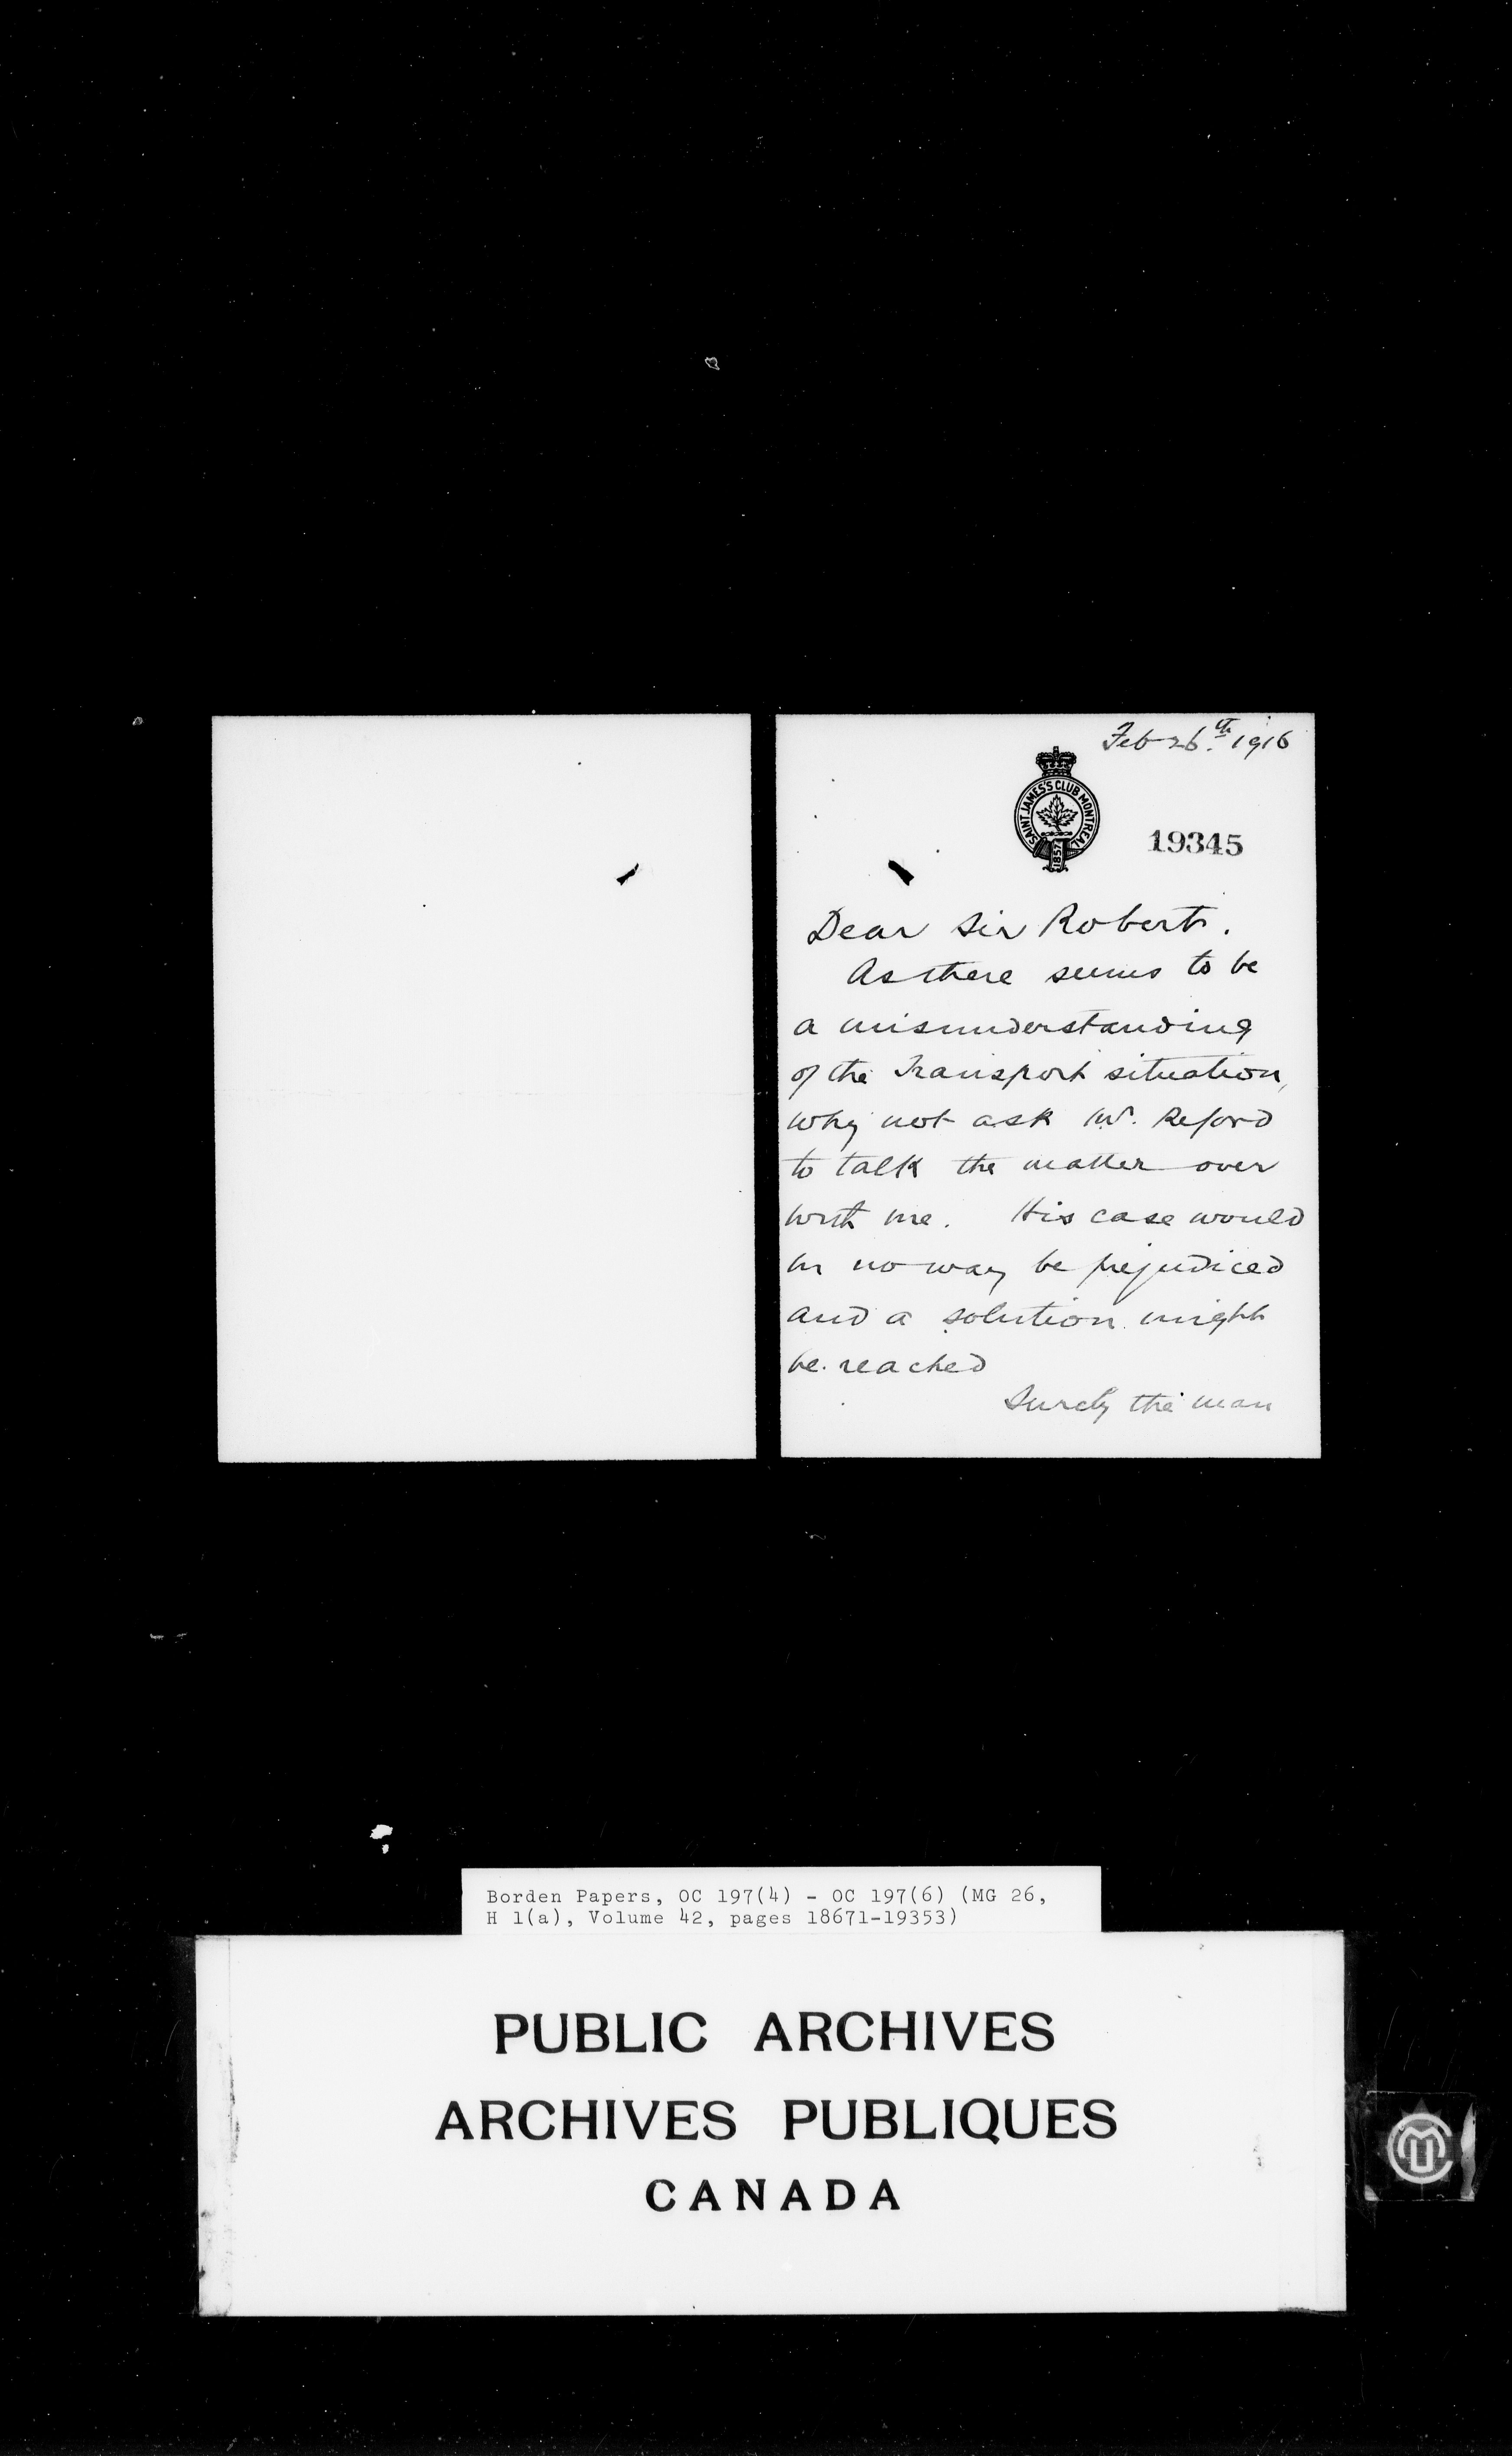 Feb 26.th 1916
SAINT JAMES'S CLUB MONTREAL
1857
19345
Dear Sir Robert.
As there seems to be
a misunderstanding
of the Transport situation,
why not ask Mr. Reford
to talk the matter over
with me. His case would
in no way be prejudiced
and a solution might
be reached
Surely the man
Borden Papers, OC 197(4) - OC 197(6) (MG 26,
H 1(a), Volume 42, pages 18671-19353)
PUBLIC ARCHIVES
ARCHIVES PUBLIQUES
CANADA